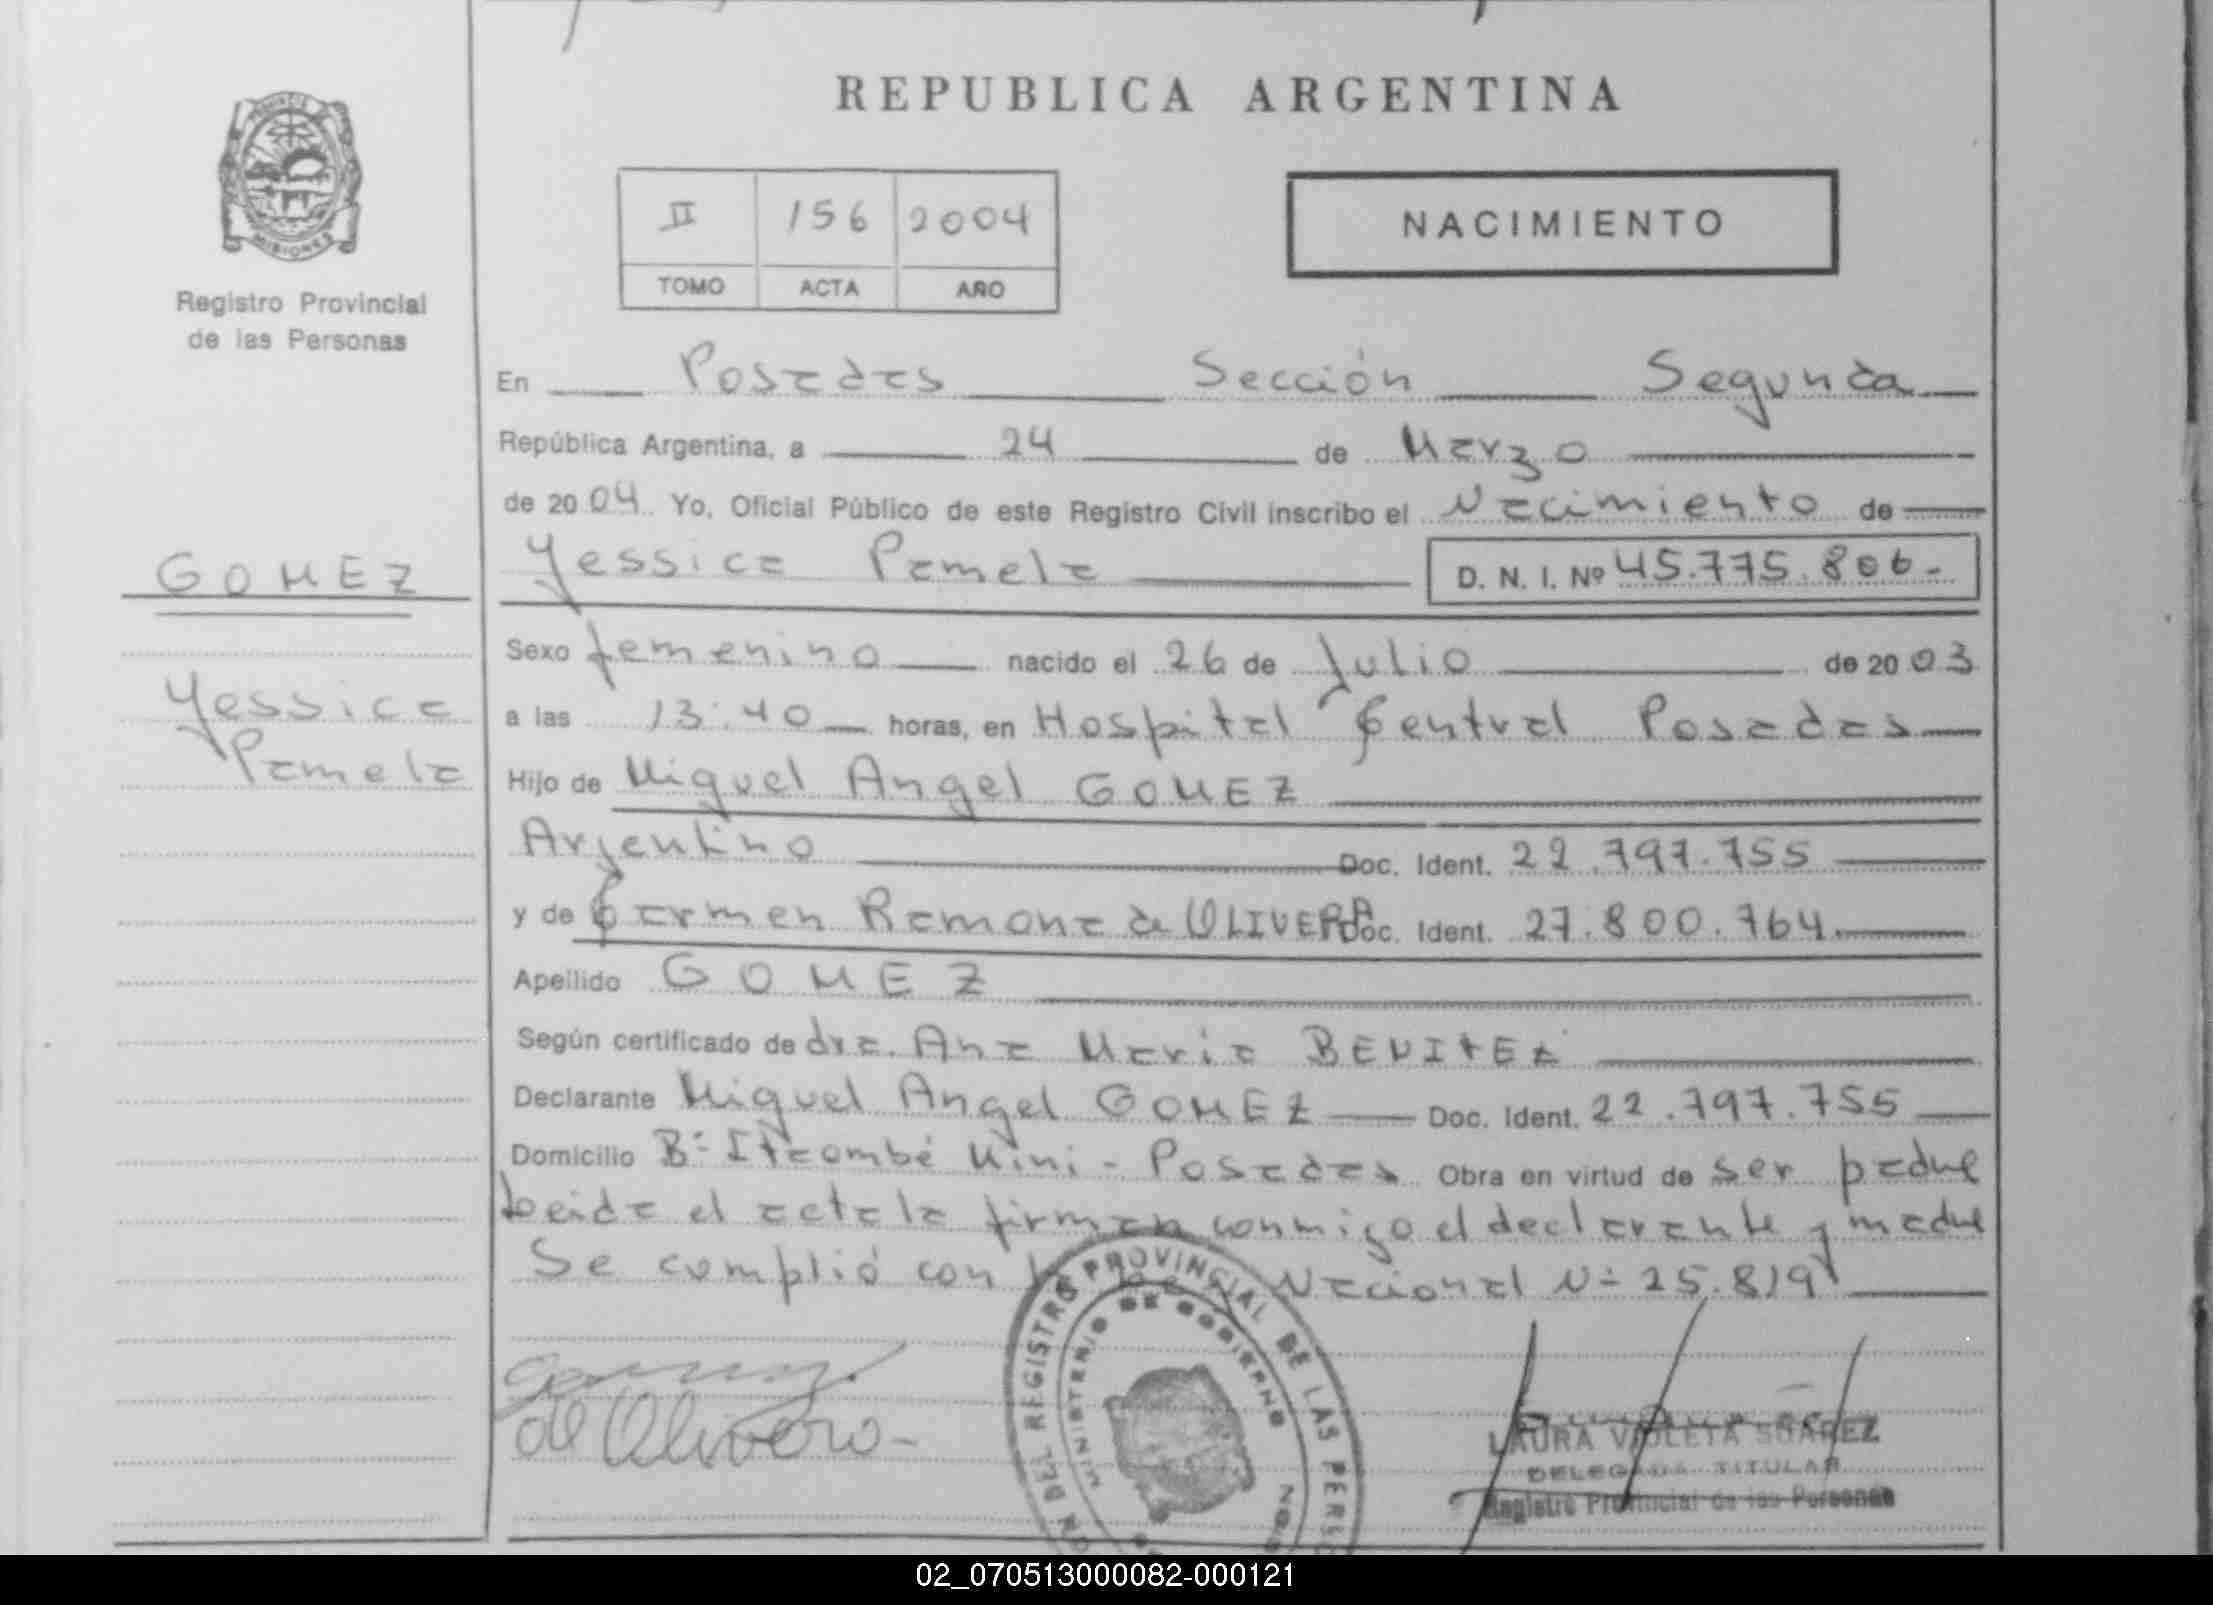 REPUBLICA ARGENTINA
PROVINCIA DE
MISIONES
Registro Provincial
de las Personas
II 156 2004
TOMO ACTA AÑO
NACIMIENTO
En Posadas Sección Segunda
República Argentina, a 24 de Marzo
de 2004 Yo, Oficial Público de este Registro Civil inscribo el Nacimiento de
GOMEZ
Yessica Pamela
Yessica Pamela D. N. I. Nº 45.775.806.-
Sexo femenino nacido el 26 de Julio de 2003
a las 13:40 horas, en Hospital Central Posadas
Hijo de Miguel Angel GOMEZ
Argentino Doc. Ident. 22.797.755
y de Carmen Ramona de OLIVERA Doc. Ident. 27.800.764
Apellido GOMEZ
Según certificado de dra. Ana Maria BENITEZ
Declarante Miguel Angel GOMEZ Doc. Ident. 22.797.755
Domicilio Bº Itaembé Mini - Posadas Obra en virtud de ser padre
Leida el acta la firman conmigo el declarante y madre
Se cumplió con la Ley Nacional Nº 25.819
Gomez
de Olivera-
DEL REGISTRO PROVINCIAL DE LAS PERSO
MINISTERIO DE GOBIERNO
LAURA VIOLETA SUAREZ
DELEGADA TITULAR
Registro Provincial de las Personas
02_070513000082-000121